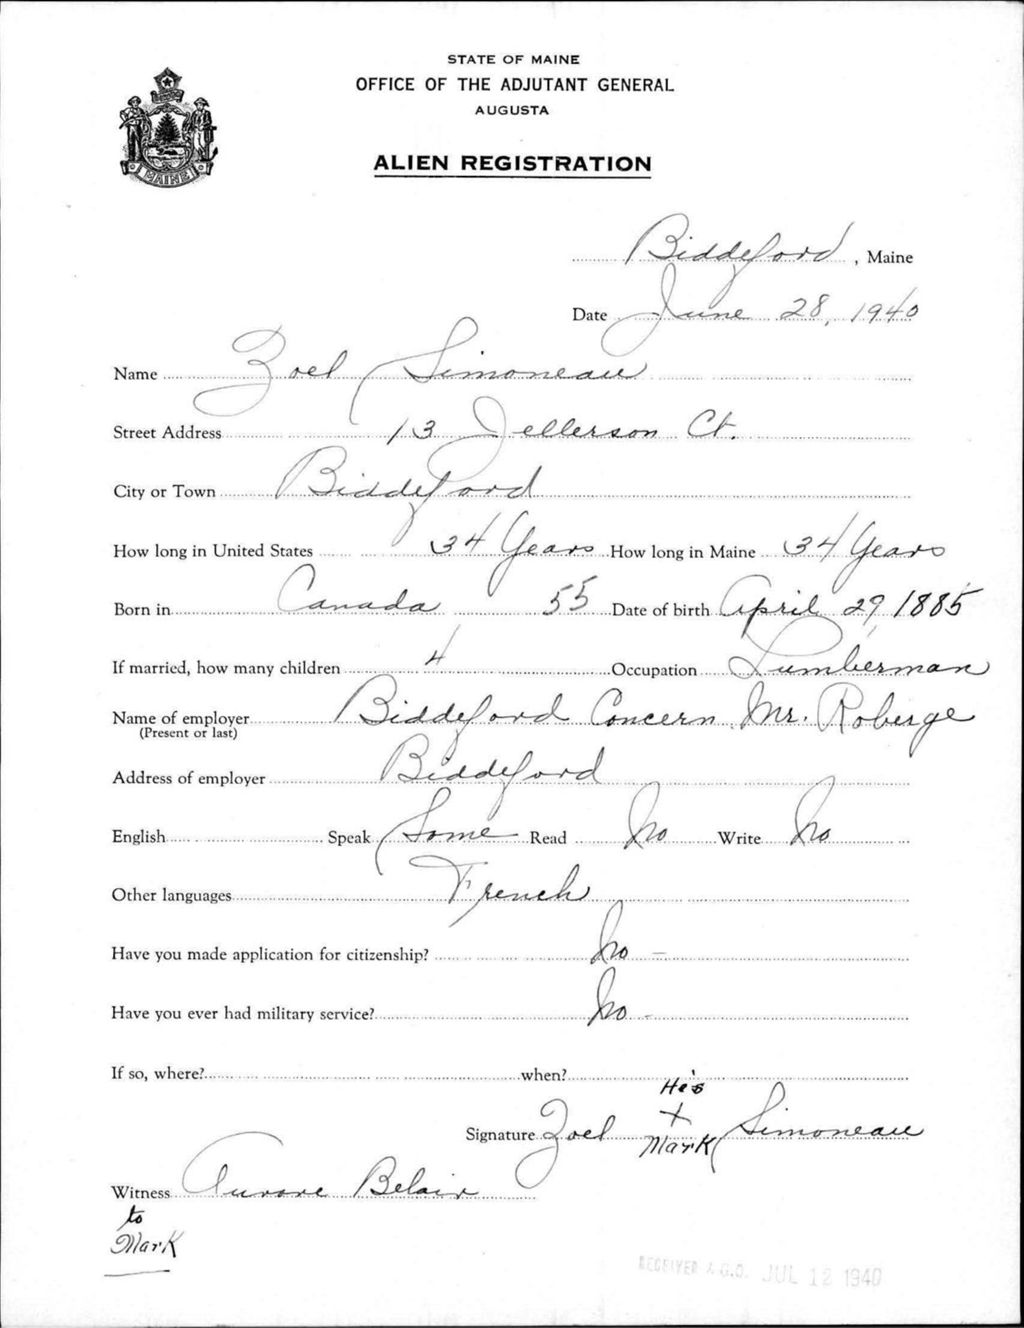 STATE OF MAINE
OFFICE OF THE ADJUTANT GENERAL
AUGUSTA
ALIEN REGISTRATION
MAINE
Biddeford, Maine
Date June 28, 1940
Name Zoel Simoneau
Street Address 13 Jellerson Ct.
City or Town Biddeford
How long in United States 34 Years How long in Maine 34 Years
Born in Canada 55 Date of birth April 29, 1885
If married, how many children 4 Occupation Lumberman
Name of employer Biddeford Concern Mr. Roberge
(Present or last)
Address of employer Biddeford
English Speak Some Read No Write No
Other languages French
Have you made application for citizenship? No -
Have you ever had military service? No -
If so, where? when?
He's
Signature Zoel + Simoneau
Mark
Witness Aurore Belair
to
Mark
RECEIVED A.G.O. JUL 12 1940